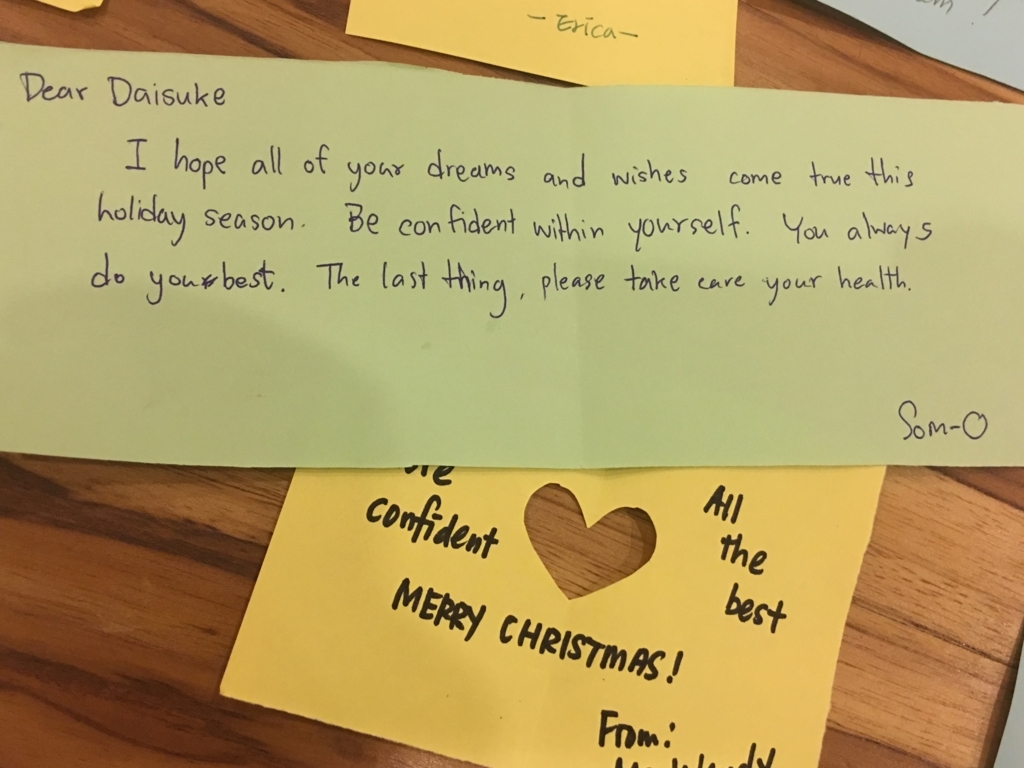 - Erica -
Dear Daisuke
I hope all of your dreams and wishes come true this
holiday season. Be confident within yourself. You always
do your best. The last thing, please take care your health.
Som-O
confident
All
the
best
MERRY CHRISTMAS!
From: